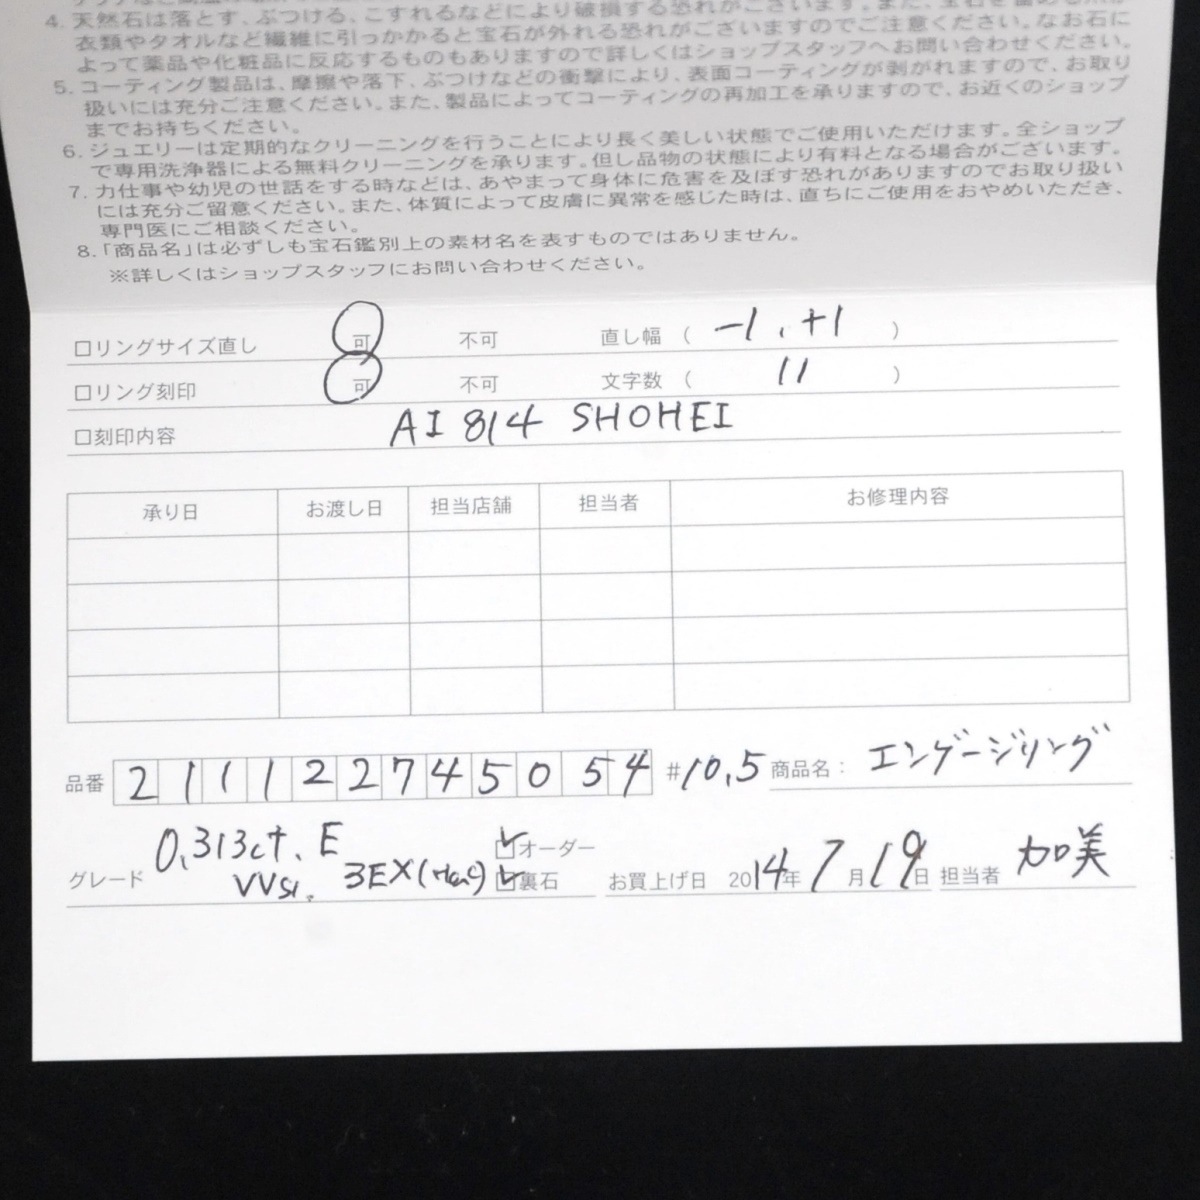 4. 天然石は落とす、ぶつける、こすれるなどにより破損する恐れがございます。また、宝石を留める爪が
衣類やタオルなど繊維に引っかかると宝石が外れる恐れがございますのでご注意ください。なお石に
よって薬品や化粧品に反応するものもありますので詳しくはショップスタッフへお問い合わせください。
5. コーティング製品は、摩擦や落下、ぶつけなどの衝撃により、表面コーティングが剥がれますので、お取り
扱いには充分ご注意ください。また、製品によってコーティングの再加工を承りますので、お近くのショップ
までお持ちください。
6. ジュエリーは定期的なクリーニングを行うことにより長く美しい状態でご使用いただけます。全ショップ
で専用洗浄器による無料クリーニングを承ります。但し品物の状態により有料となる場合がございます。
7. 力仕事や幼児の世話をする時などは、あやまって身体に危害を及ぼす恐れがありますのでお取り扱い
には充分ご留意ください。また、体質によって皮膚に異常を感じた時は、直ちにご使用をおやめいただき、
専門医にご相談ください。
8.「商品名」は必ずしも宝石鑑別上の素材名を表すものではありません。
※詳しくはショップスタッフにお問い合わせください。
□リングサイズ直し 可 不可 直し幅 ( -1、+1 )
□リング刻印 可 不可 文字数 ( 11 )
□刻印内容 AI 814 SHOHEI
承り日 お渡し日 担当店舗 担当者 お修理内容
品番 211122745054 #10.5 商品名: エンゲージリング
0.313ct、E オーダー
グレード VVS1、3EX(H&C) 裏石 お買上げ日 2014年 7月19日 担当者 加美